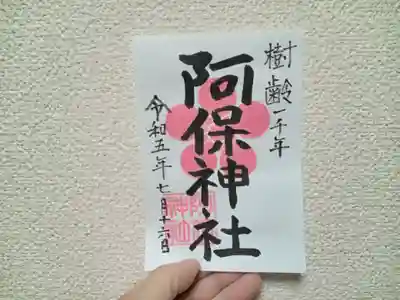 樹齢一千年
阿保神社
令和五年七月十六日